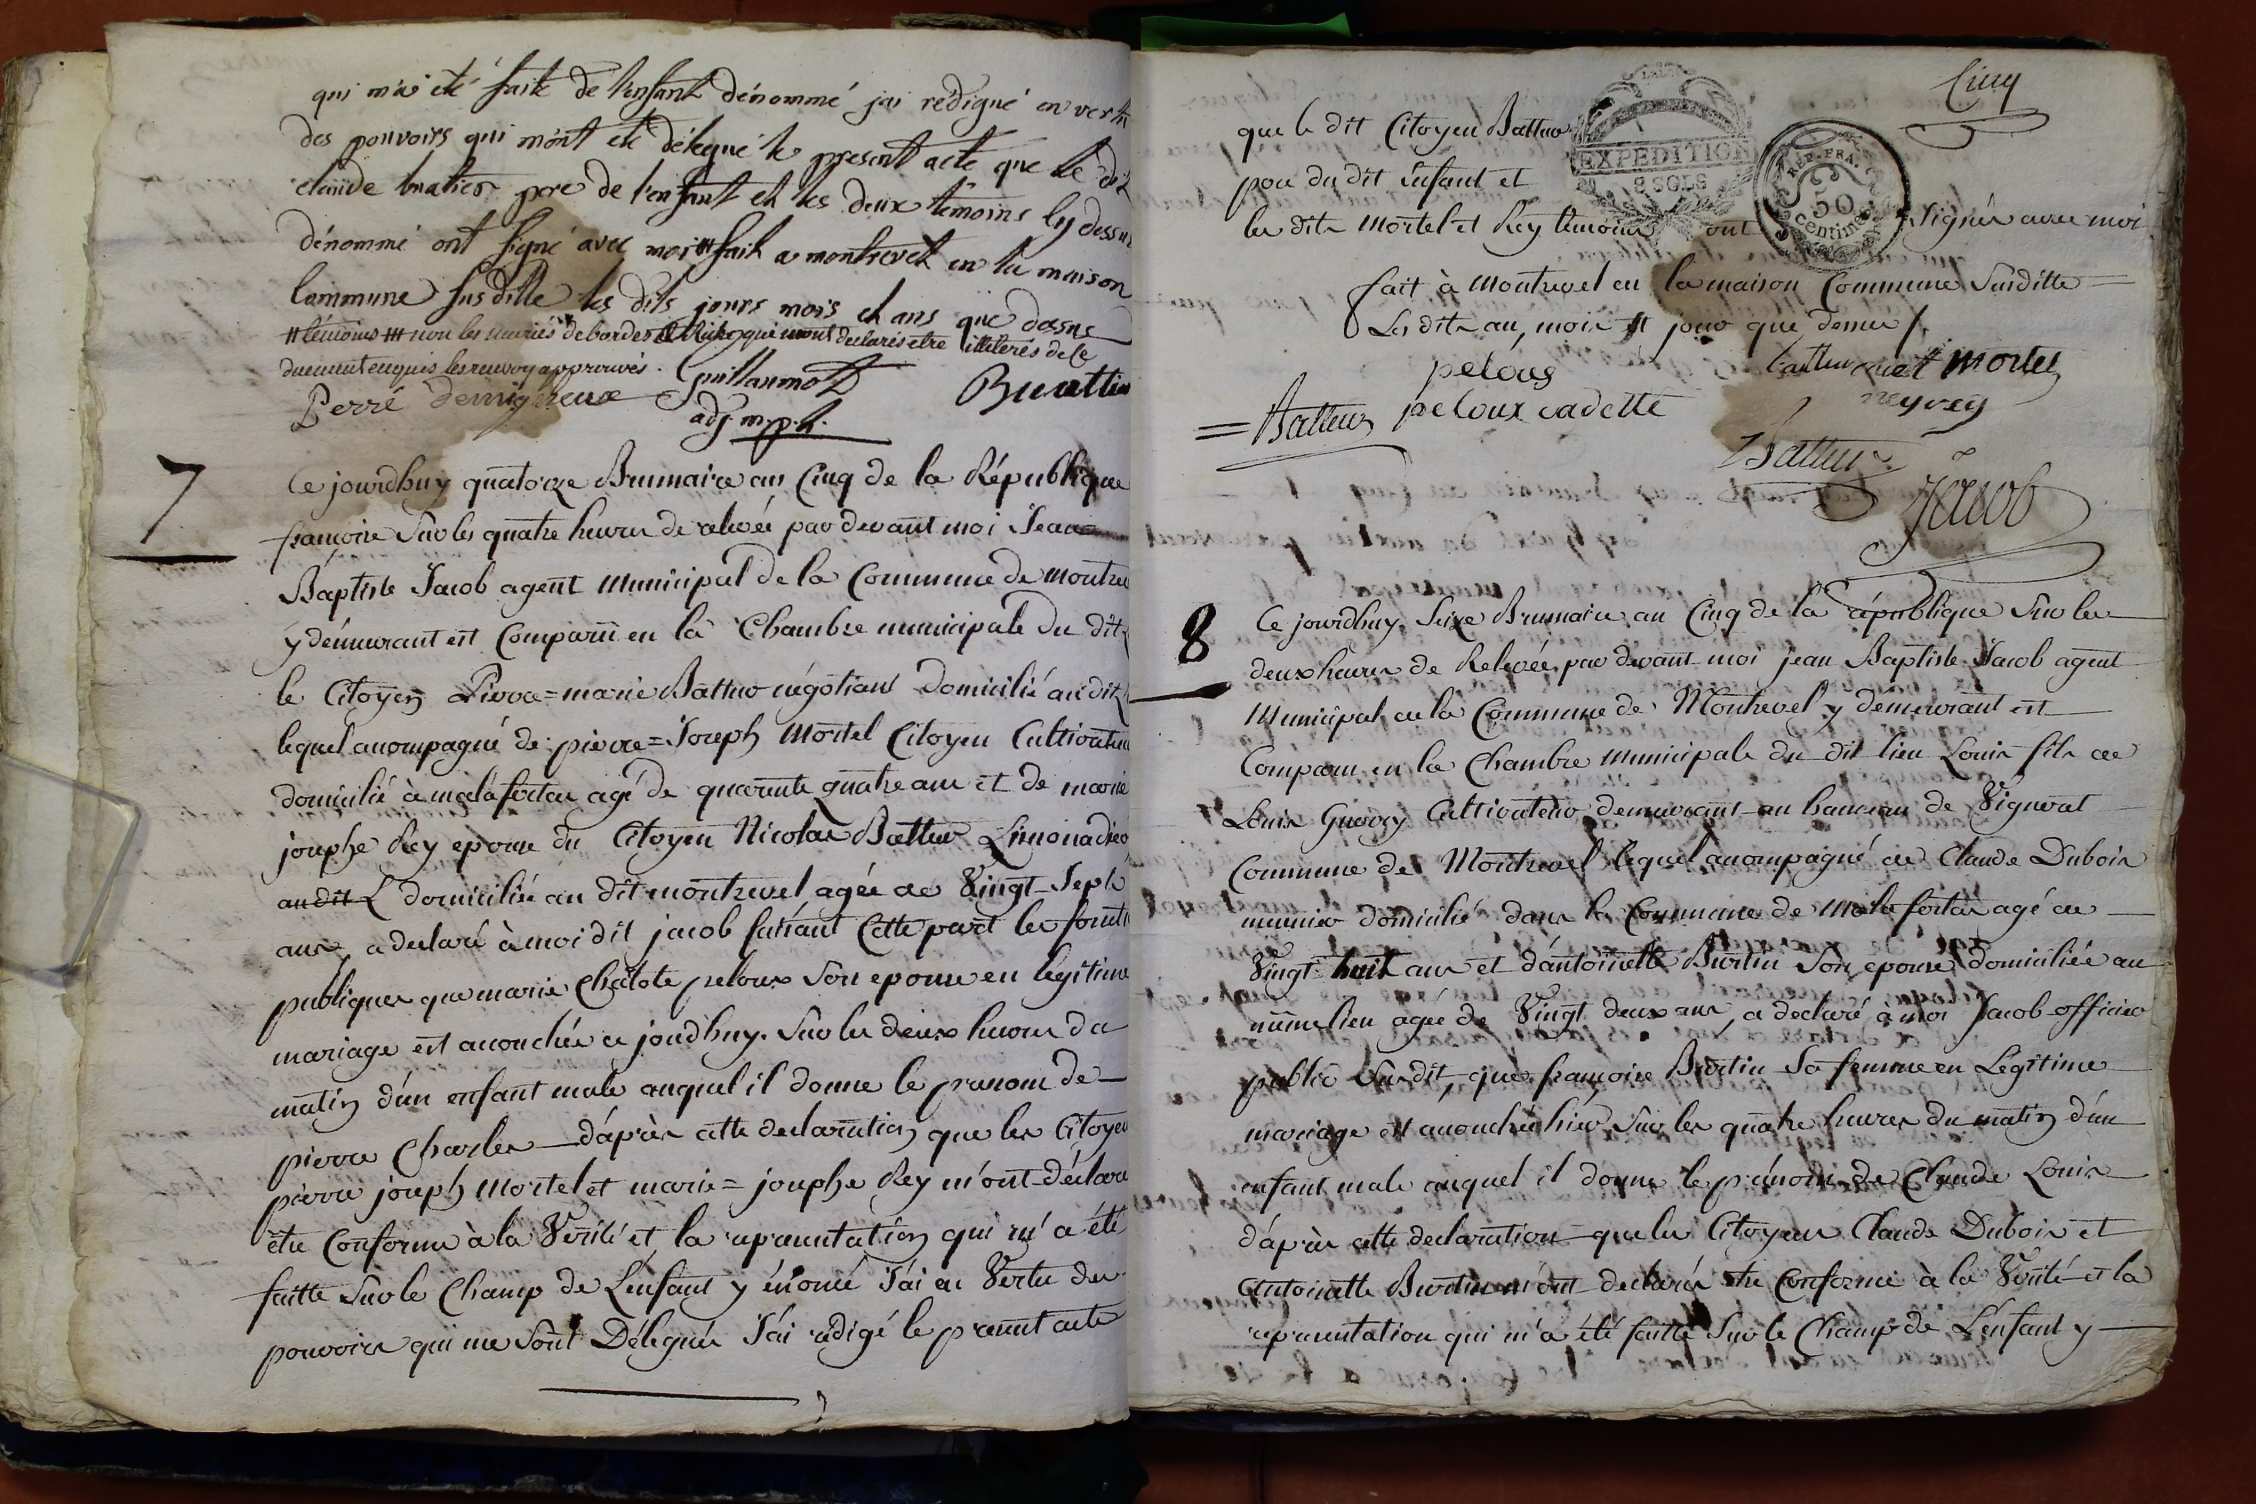 qui m'a été faite de l'enfant dénommé j'ai rédigué en vertu
des pouvoirs qui m'ont eté délegué le present acte que le dit
claude pere de l'enfant et les deux temoins cy dessus
dénommé ont signé avec moi fait a montrevel en la maison
Commune susditte les dits jours mois et ans que dessus
témoins non les de bordes et qui mont declarés etre illiterés de ce
duement enquis les renvoy approuvés. Guillaumot
Perré Buattier
adj. m.p.l.
7
Ce jourdhuy quatorze Brumaire an Cinq de la République
françoise Sur les quatre heures de relevée par devant moi Jean
Baptiste Jacob agent Municipal de la Commune de Montrevel
y démeurant est Comparu en la Chambre municipale du dit
le Citoyen Pierre = marie Battur négotiant Domicilié au dit
lequel accompagné de pierre = Joseph Mortel Citoyen Cultivateur
domicilié à malafertas agé de quarente quatre ans et de marie
josephe Rey epouse du Citoyen Nicolas Battur Limonadier
au dit L domiciliée au dit montrevel agée de Vingt-Sept
ans, a declaré à moi dit jacob faisant Cette part les fonctions
publiques que marie Chalote peloux Son epouse en legitime
mariage est accouchée ce jourdhuy Sur les deux heures du
matin d'un enfant male auquel il donne le prenom de
pierre Charles d'après cette declaration que les Citoyens
pierre joseph Mortel et marie = josephe Rey m'ont déclaré
être Conforme à la Verité et la représentation qui m'a été
faitte Sur le Champ de L'enfant y énomé J'ai en Vertu des
pouvoirs qui me Sont Délegués J'ai rédigé le présent acte
Cinq
que le dit Citoyen Battur
pere du dit enfant et
les dits Mortel et Rey témoins ont signés avec moi
EXPEDITION
8 SOLS
REP. FRA.
50
Centimes
fait à Montrevel en la maison Commune Susditte
Les dits an, mois et jour que dessus
pelous
Mortel
= Battur peloux cadette
Battur
Jacob
8
Ce jourdhuy Seize Brumaire an Cinq de la république Sur les
deux heures de Relevée par devant moi jean Baptiste Jacob agent
Municipal de la Commune de Montrevel y démeurant est
Comparu en la Chambre Municipale du dit lieu Louis fils de
Louis Guerry Cultivateur demeurant au hameau de Vignerat
Commune de Montrevel lequel accompagné de Claude Dubois
meunier domicilié dans la Commune de Malafertas agé de
Vingt huit ans et d'antoinette Burtin Son epouse domiciliée au
même lieu agée de Vingt deux ans, a declaré à moi Jacob officier
public Susdit, que françoise Burtin Sa femme en Legitime
mariage est accouchée hier Sur les quatre heures du matin d'un
enfant male auquel il donne le prénom de Claude Louis
d'après cette declaration que les Citoyens Claude Dubois et
Antoinette Burtin m'ont declarés etre Conforme à la Verité et la
représentation qui m'a été faitte Sur le Champ de L'enfant y